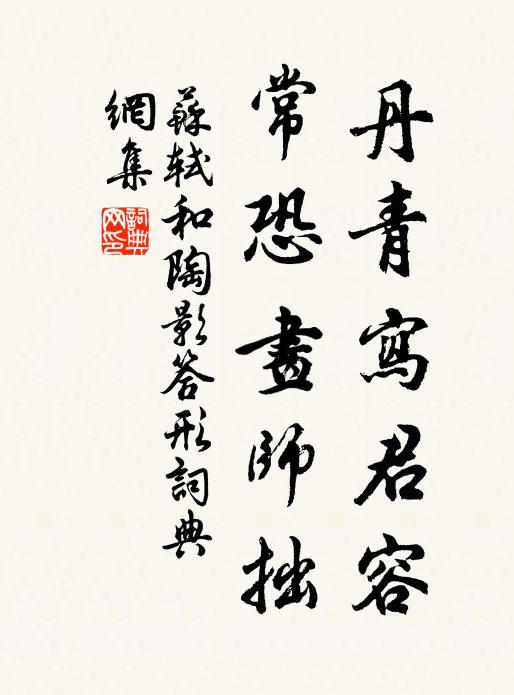 丹青寫君容
常恐畫師拙
蘇軾和陶影答形詞典
網集
詞典網印